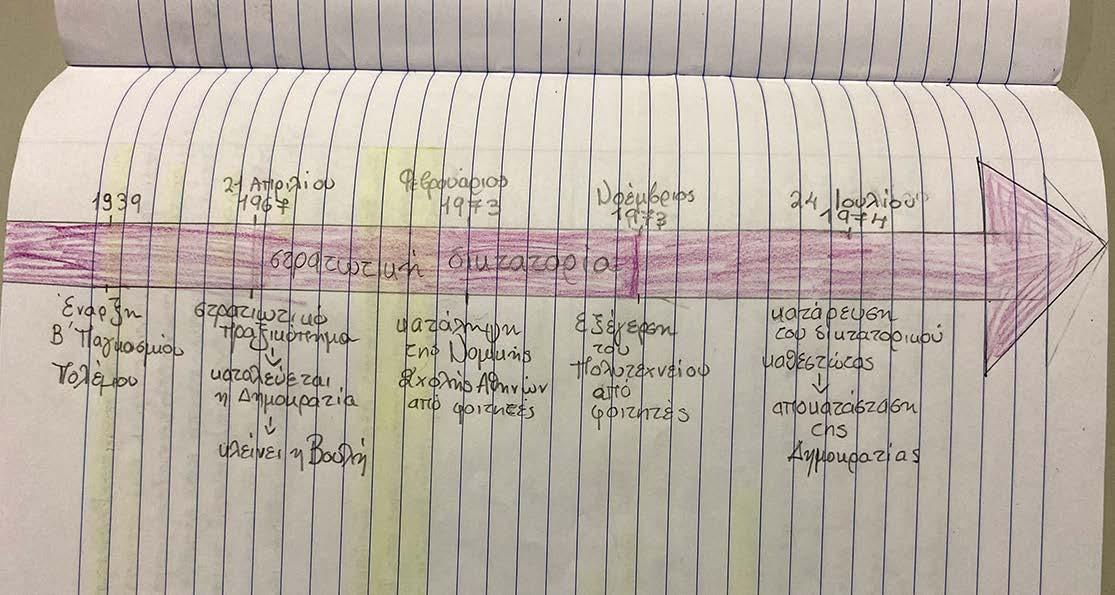 1939
21 Απριλίου
1967
Φεβρουάριος
1973
Νοέμβριος
1973
24 Ιουλίου
1974
στρατιωτική δικτατορία
Έναρξη
Β' Παγκοσμίου
Πολέμου
στρατιωτικό
πραξικόπημα
↓
καταλύεται
η Δημοκρατία
↓
κλείνει η Βουλή
κατάληψη
της Νομικής
Σχολής Αθηνών
από φοιτητές
Εξέγερση
του
Πολυτεχνείου
από
φοιτητές
κατάρευση
του δικτατορικού
καθεστώτος
↓
αποκατάσταση
της
Δημοκρατίας